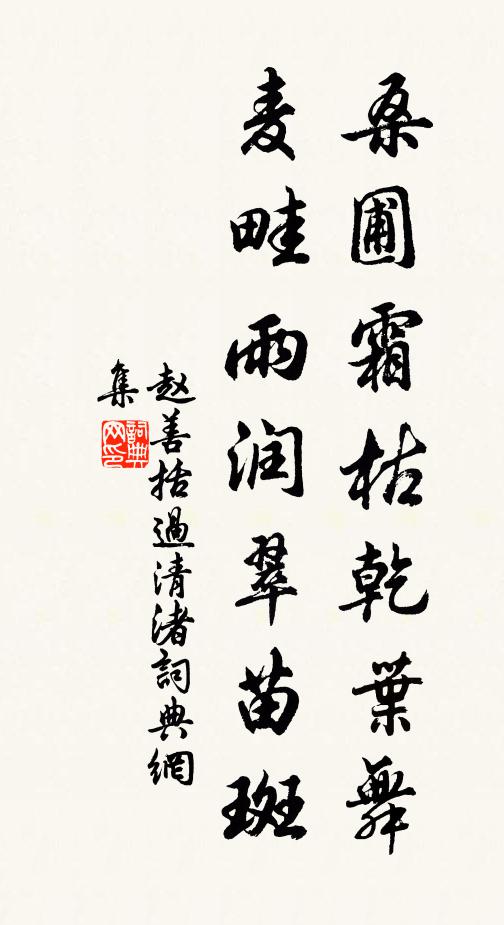 桑圃霜枯乾葉舞
麦畦雨润翠苗斑
赵善括過清渚詞典網
集
詞典网印